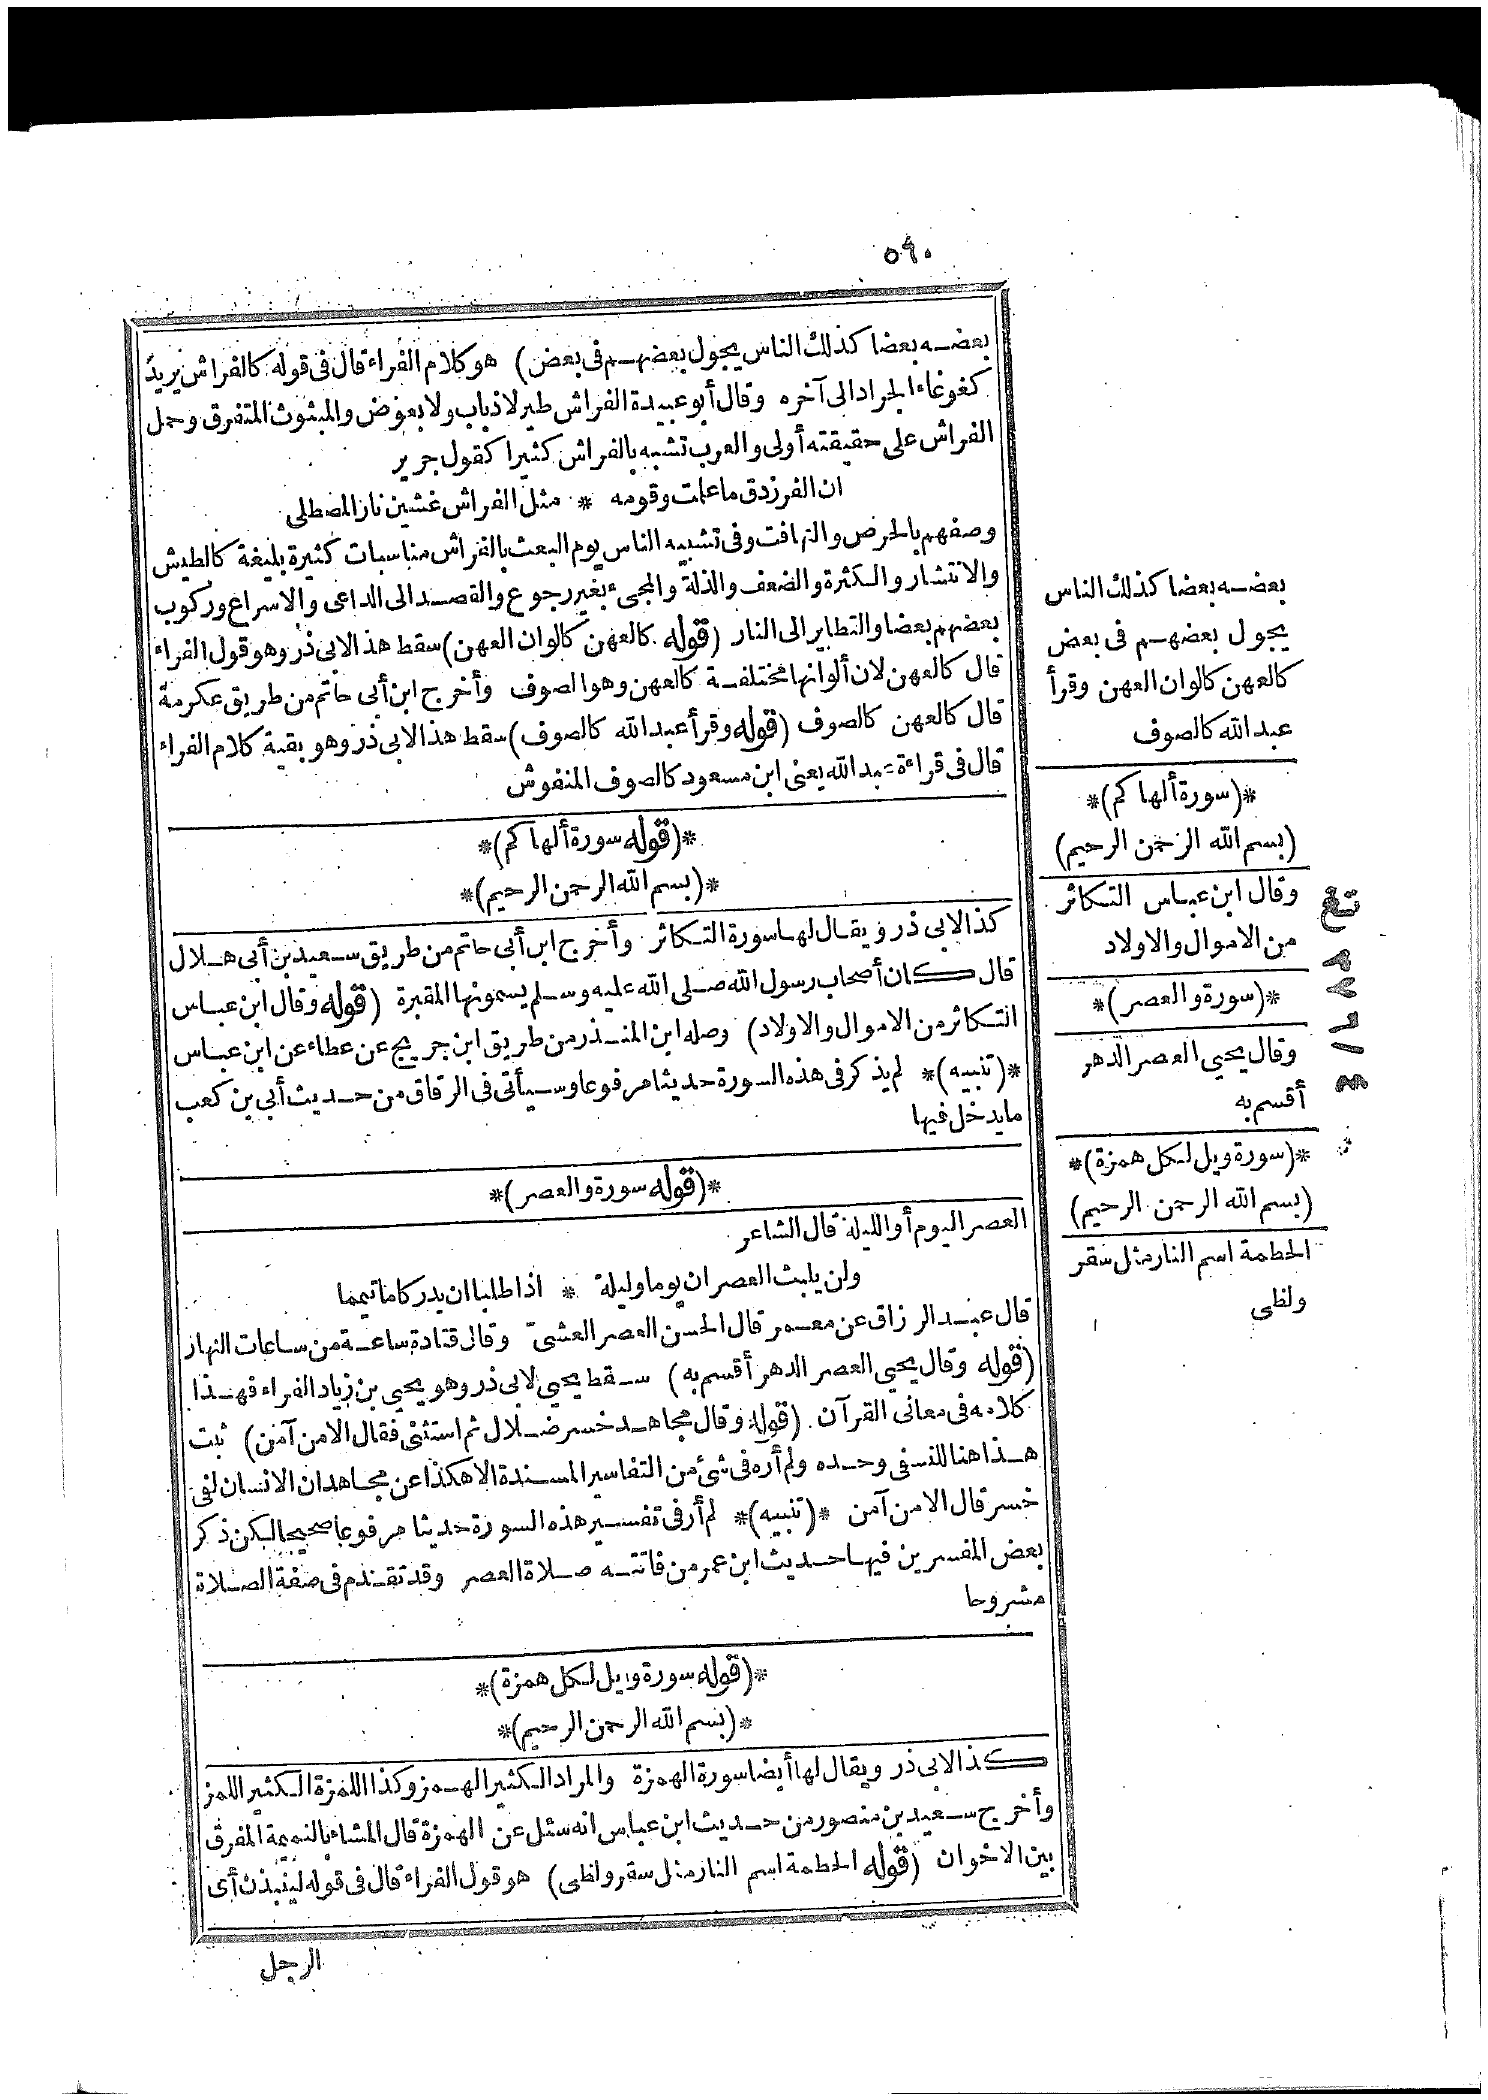 ٥٩٠
بعضه بعضا كذلك الناس يجول بعضهم فى بعض) هو كلام الفراء قال فى قوله كالفراش يريد
كغوغاء الجراد الى آخره وقال أبو عبيدة الفراش طير لا ذباب ولا بعوض والمبثوث المتفرق وحمل
الفراش على حقيقته أولى والعرب تشبه بالفراش كثيرا كقول جرير
ان الفرزدق ما علمت وقومه * مثل الفراش غشين نار المصطلى
وصفهم بالحرص والتهافت وفى تشبيه الناس يوم البعث بالفراش مناسبات كثيرة بليغة كالطيش
والانتشار والكثرة والضعف والذلة والمجىء بغير رجوع والقصد الى الداعى والاسراع وركوب
بعضهم بعضا والتطاير الى النار (قوله كالعهن كالوان العهن) سقط هذا لابى ذر وهو قول الفراء
قال كالعهن لان ألوانها مختلفة كالعهن وهو الصوف وأخرج ابن أبى حاتم من طريق عكرمة
قال كالعهن كالصوف (قوله وقرأ عبد الله كالصوف) سقط هذا لابى ذر وهو بقية كلام الفراء
قال فى قراءة عبد الله يعنى ابن مسعود كالصوف المنفوش
*(قوله سورة ألهاكم)*
*(بسم الله الرحمن الرحيم)*
كذا لابى ذر ويقال لها سورة التكاثر وأخرج ابن أبى حاتم من طريق سعيد بن أبى هلال
قال كان أصحاب رسول الله صلى الله عليه وسلم يسمونها المقبرة (قوله وقال ابن عباس
التكاثر من الاموال والاولاد) وصله ابن المنذر من طريق ابن جريج عن عطاء عن ابن عباس
*(تنبيه)* لم يذكر فى هذه السورة حديثا مرفوعا وسيأتى فى الرقاق من حديث أبى بن كعب
ما يدخل فيها
*(قوله سورة والعصر)*
العصر اليوم أو الليلة قال الشاعر
ولن يلبث العصران يوما وليلة * اذا طلبا ان يدركا ما تيمما
قال عبد الرزاق عن معمر قال الحسن العصر العشىّ وقال قتادة ساعة من ساعات النهار
(قوله وقال يحيى العصر الدهر أقسم به) سقط يحيى لابى ذر وهو يحيى بن زياد الفراء فهذا
كلامه فى معانى القرآن (قوله وقال مجاهد خسر ضلال ثم استثنى فقال الا من آمن) ثبت
هذا هنا للنسفى وحده ولم أره فى شئ من التفاسير المسندة الا هكذا عن مجاهد ان الانسان لفى
خسر قال الا من آمن *(تنبيه)* لم أر فى تفسير هذه السورة حديثا مرفوعا صحيحا لكن ذكر
بعض المفسرين فيها حديث ابن عمر من فاتته صلاة العصر وقد تقدم فى صفة الصلاة
مشروحا
*(قوله سورة ويل لكل همزة)*
*(بسم الله الرحمن الرحيم)*
كذا لابى ذر ويقال لها أيضا سورة الهمزة والمراد الكثير الهمز وكذا اللمزة الكثير اللمز
وأخرج سعيد بن منصور من حديث ابن عباس انه سئل عن الهمزة قال المشاء بالنميمة المفرق
بين الاخوان (قوله الحطمة اسم النار مثل سقر ولظى) هو قول الفراء قال فى قوله لينبذن أى
الرجل
بعضه بعضا كذلك الناس
يجول بعضهم فى بعض
كالعهن كالوان العهن وقرأ
عبد الله كالصوف
*(سورة ألهاكم)*
(بسم الله الرحمن الرحيم)
وقال ابن عباس التكاثر
من الاموال والاولاد
*(سورة والعصر)*
وقال يحيى العصر الدهر
أقسم به
*(سورة ويل لكل همزة)*
(بسم الله الرحمن الرحيم)
الحطمة اسم النار مثل سقر
ولظى
تغ